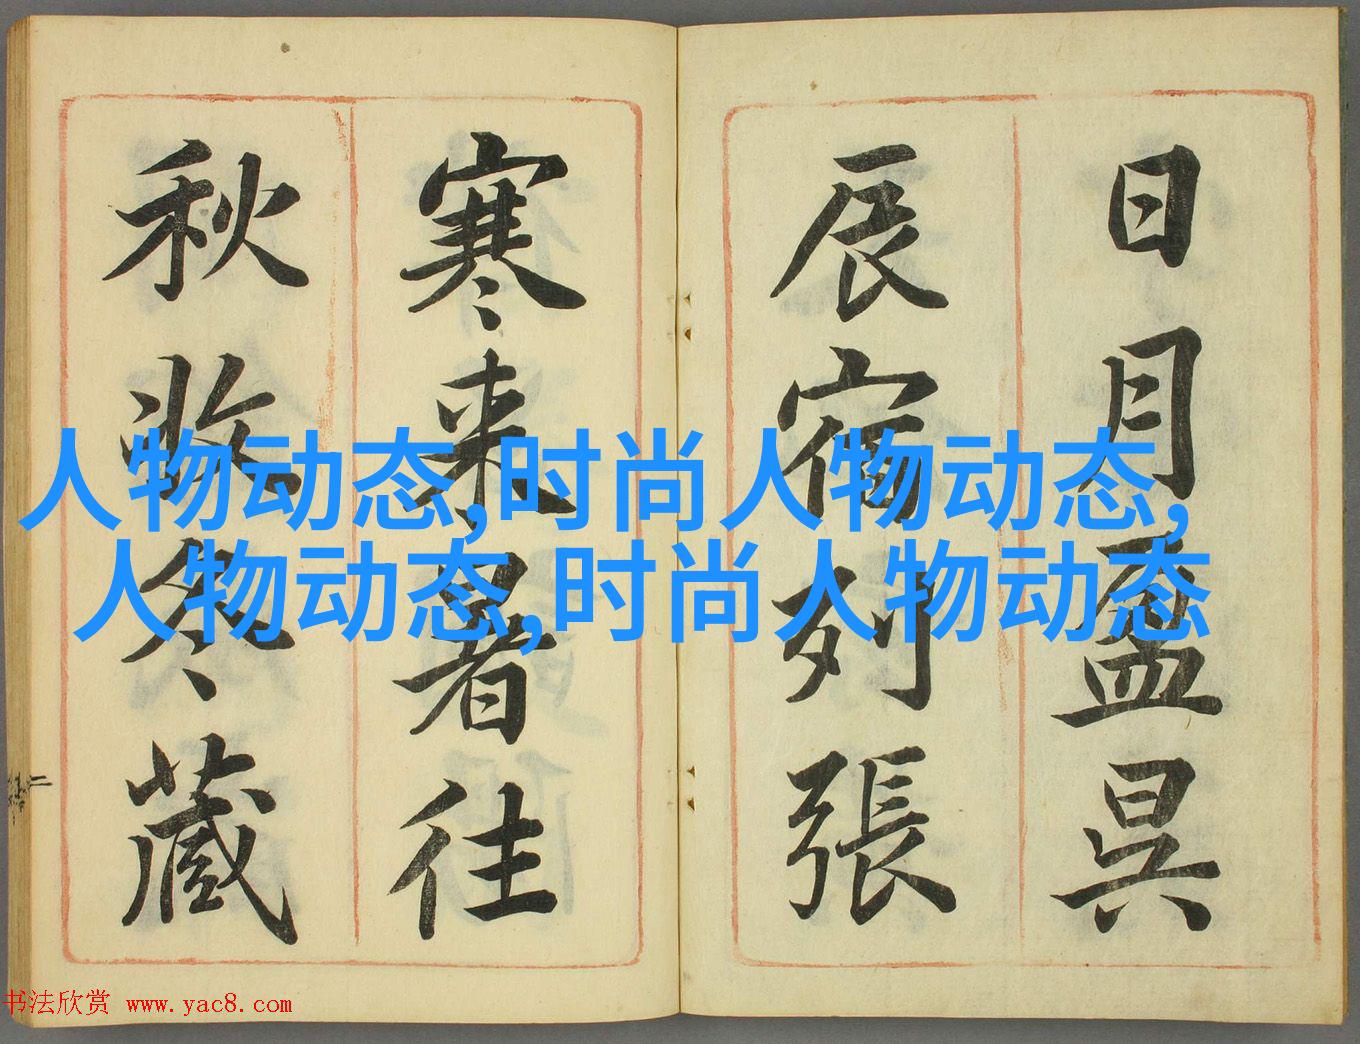 日月盈昃
辰宿列張
寒来暑往
秋收冬藏
人物动态,时尚人物动态,
人物动态,时尚人物动态
书法欣赏 www.yac8.com